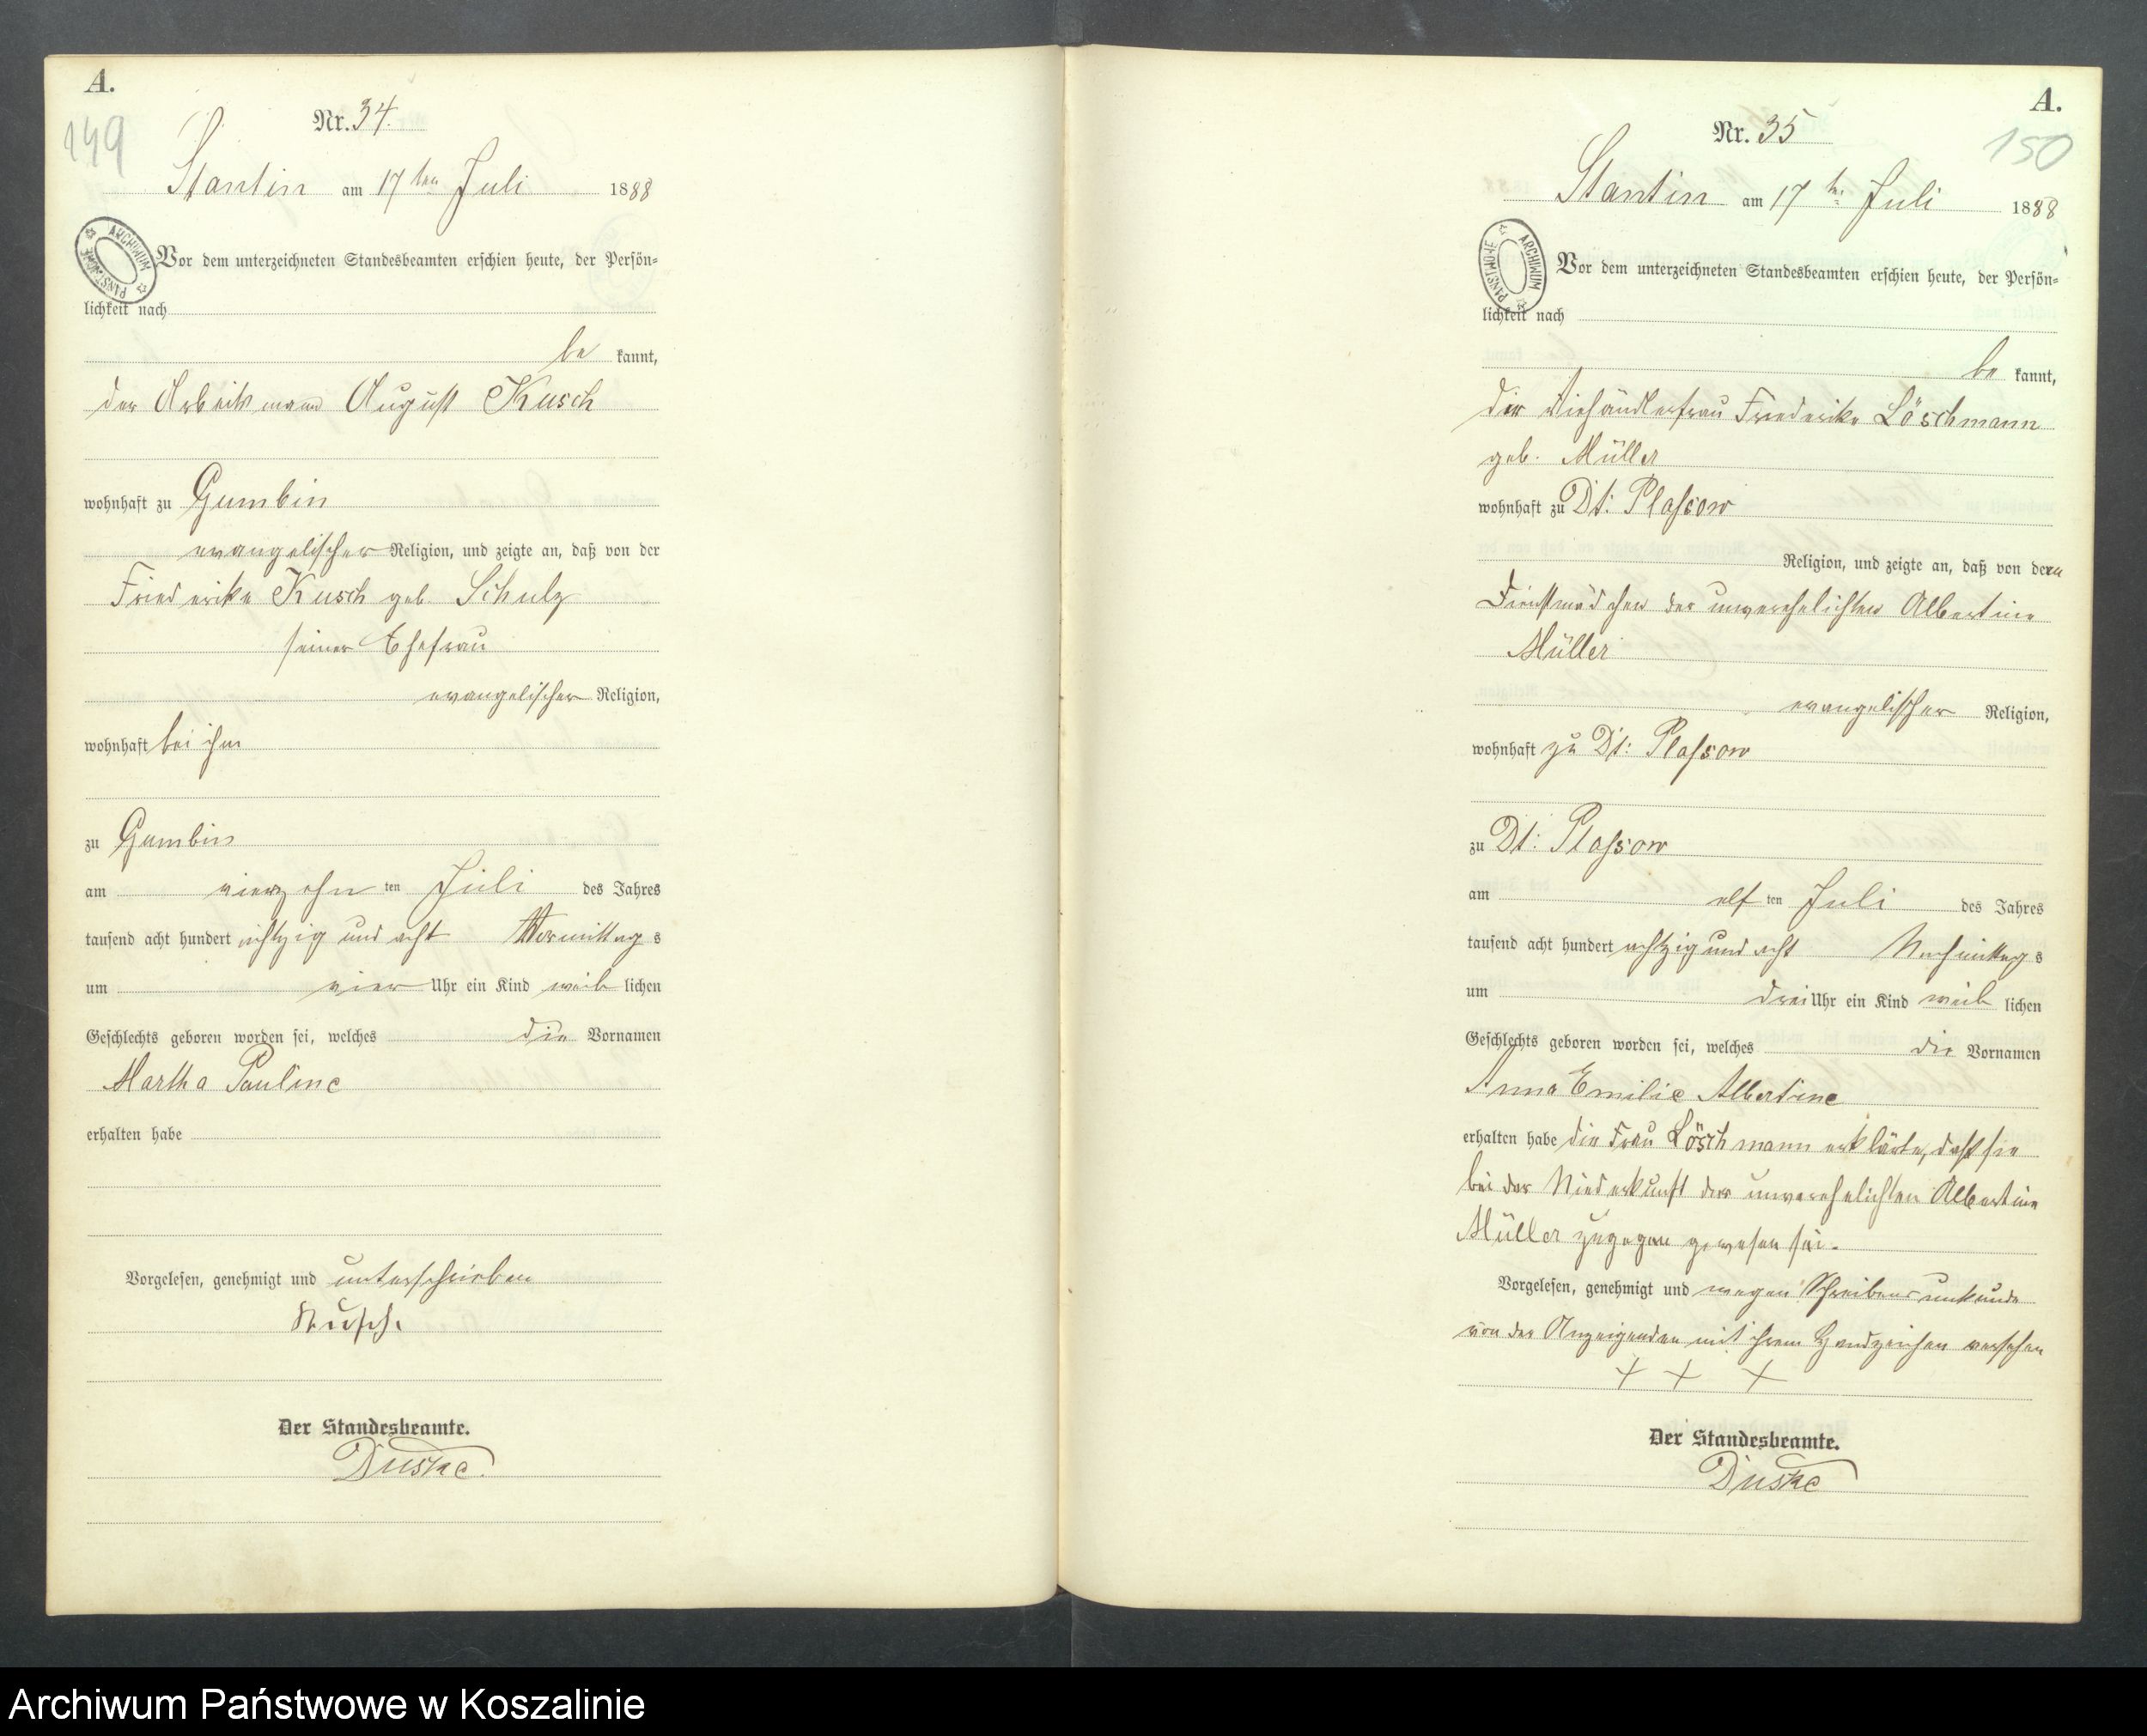 A.
149
Nr. 34.
Stantin am 17ten Juli 1888
ARCHIWUM PAŃSTWOWE
Vor dem unterzeichneten Standesbeamten erschien heute, der Persön-
lichkeit nach
be kannt,
der Arbeitsmann August Kusch
wohnhaft zu Gumbin
evangelischer Religion, und zeigte an, daß von der
Friederike Kusch geb. Schulz
seiner Ehefrau
evangelischer Religion,
wohnhaft bei ihm
zu Gumbin
am vierzehn ten Juli des Jahres
tausend acht hundert achtzig und acht Vormittag s
um vier Uhr ein Kind weib lichen
Geschlechts geboren worden sei, welches die Vornamen
Martha Pauline
erhalten habe
Vorgelesen, genehmigt und unterschrieben
Kusch.
Der Standesbeamte.
Duske.
A.
150
Nr. 35
Stantin am 17ten Juli 1888
ARCHIWUM PAŃSTWOWE
Vor dem unterzeichneten Standesbeamten erschien heute, der Persön-
lichkeit nach
be kannt,
die Viehändlerfrau Friederike Löschmann
geb. Müller
wohnhaft zu Dt: Plassow
Religion, und zeigte an, daß von der
Dienstmädchen der unverehelichten Albertine
Müller
evangelischer Religion,
wohnhaft zu Dt: Plassow
zu Dt: Plassow
am elf ten Juli des Jahres
tausend acht hundert achtzig und acht Nachmittag s
um drei Uhr ein Kind weib lichen
Geschlechts geboren worden sei, welches die Vornamen
Anna Emilie Albertine
erhalten habe die Frau Löschmann erklärte, daß sie
bei der Niederkunft der unverehelichten Albertine
Müller zugegen gewesen sei.
Vorgelesen, genehmigt und wegen Schreibensunkunde
von der Anzeigenden mit ihrem Handzeichen versehen
+ + +
Der Standesbeamte.
Duske
Archiwum Państwowe w Koszalinie